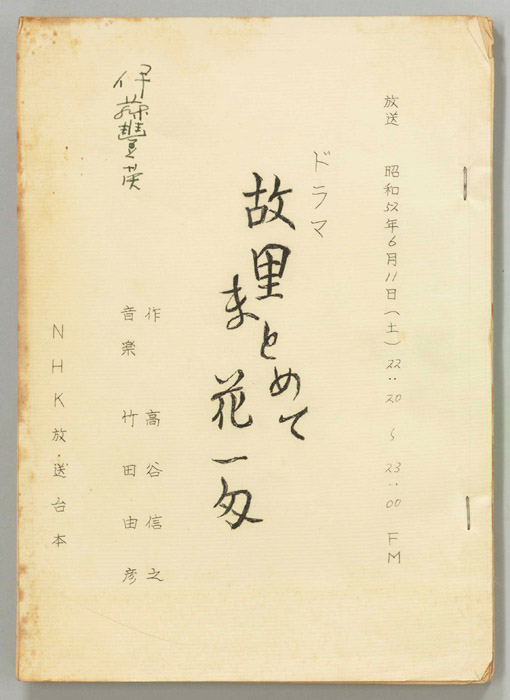 放送 昭和52年6月11日(土) 22:20〜23:00 FM
ドラマ
故里まとめて
花一匁
作 高谷信之
音楽 竹田由彦
伊藤豊英
NHK放送台本